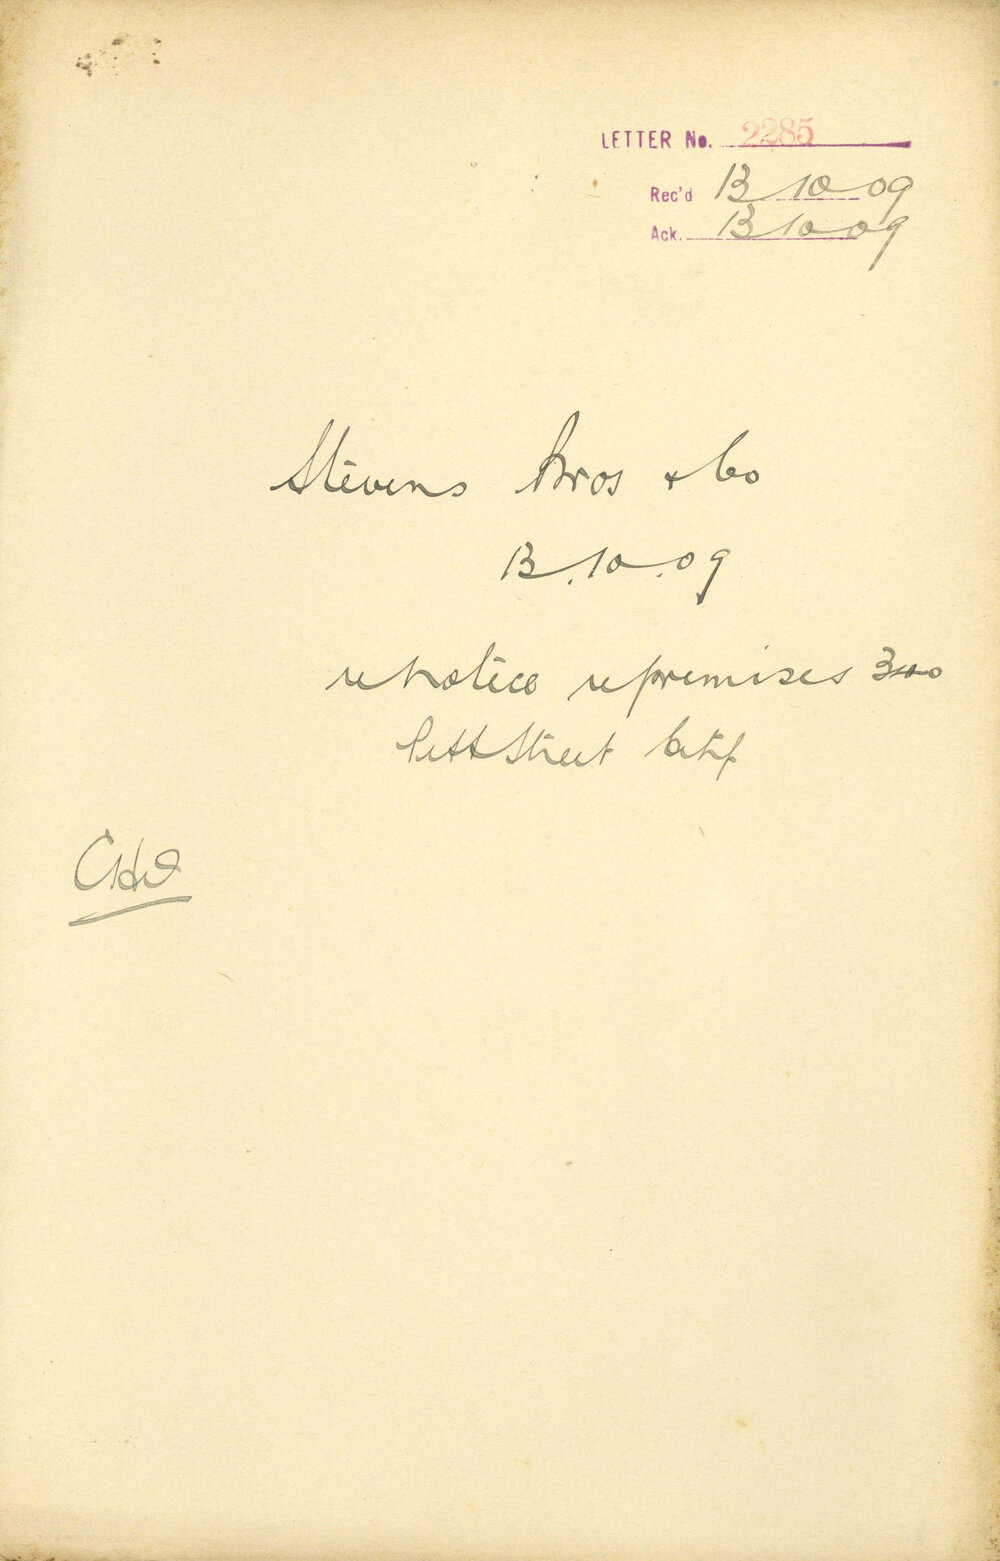 LETTER No. 2285
Rec'd 13 10 09
Ack. 13 10 09
Stevens Bros & Co
13.10.09
re notice re premises 340
Pitt Street City